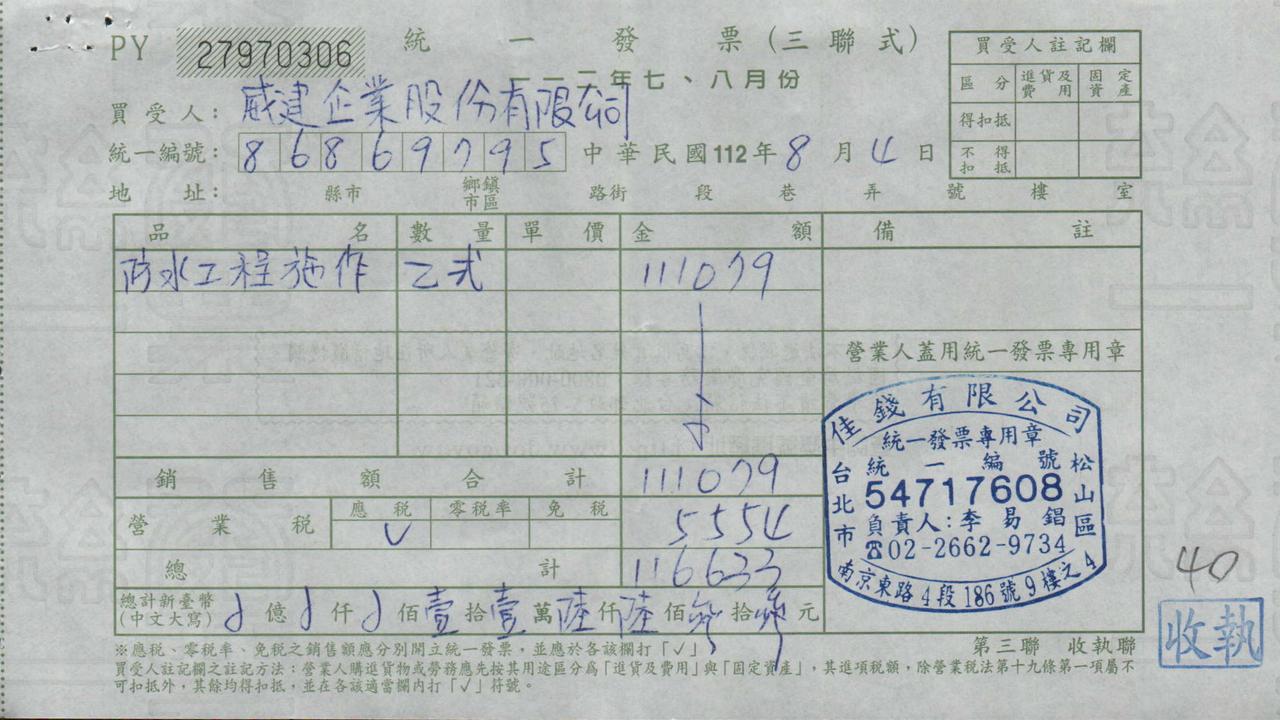 PY 27970306 統一發票(三聯式)
一一二年七、八月份
買受人註記欄
區分 進貨及費用 固定資產
得扣抵
不得扣抵
買受人: 威建企業股份有限公司
統一編號: 86869795 中華民國112年8月4日
地址: 縣市 鄉鎮市區 路街 段 巷 弄 號 樓 室
品名 數量 單價 金額 備註
防水工程施作 乙式 111079
營業人蓋用統一發票專用章
銷售額合計 111079
營業稅 應稅 零稅率 免稅
V 5554
總計 116633
總計新臺幣(中文大寫) 億 仟 佰壹拾壹萬陸仟陸佰參拾參元
佳錢有限公司
統一發票專用章
統一編號
54717608
負責人:李易錩
☎02-2662-9734
台北市松山區
南京東路4段186號9樓之4
40
收執
第三聯 收執聯
※應稅、零稅率、免稅之銷售額應分別開立統一發票,並應於各該欄打「✓」
買受人註記欄之註記方法:營業人購進貨物或勞務應先按其用途區分為「進貨及費用」與「固定資產」,其進項稅額,除營業稅法第十九條第一項屬不
可扣抵外,其餘均得扣抵,並在各該適當欄內打「✓」符號。